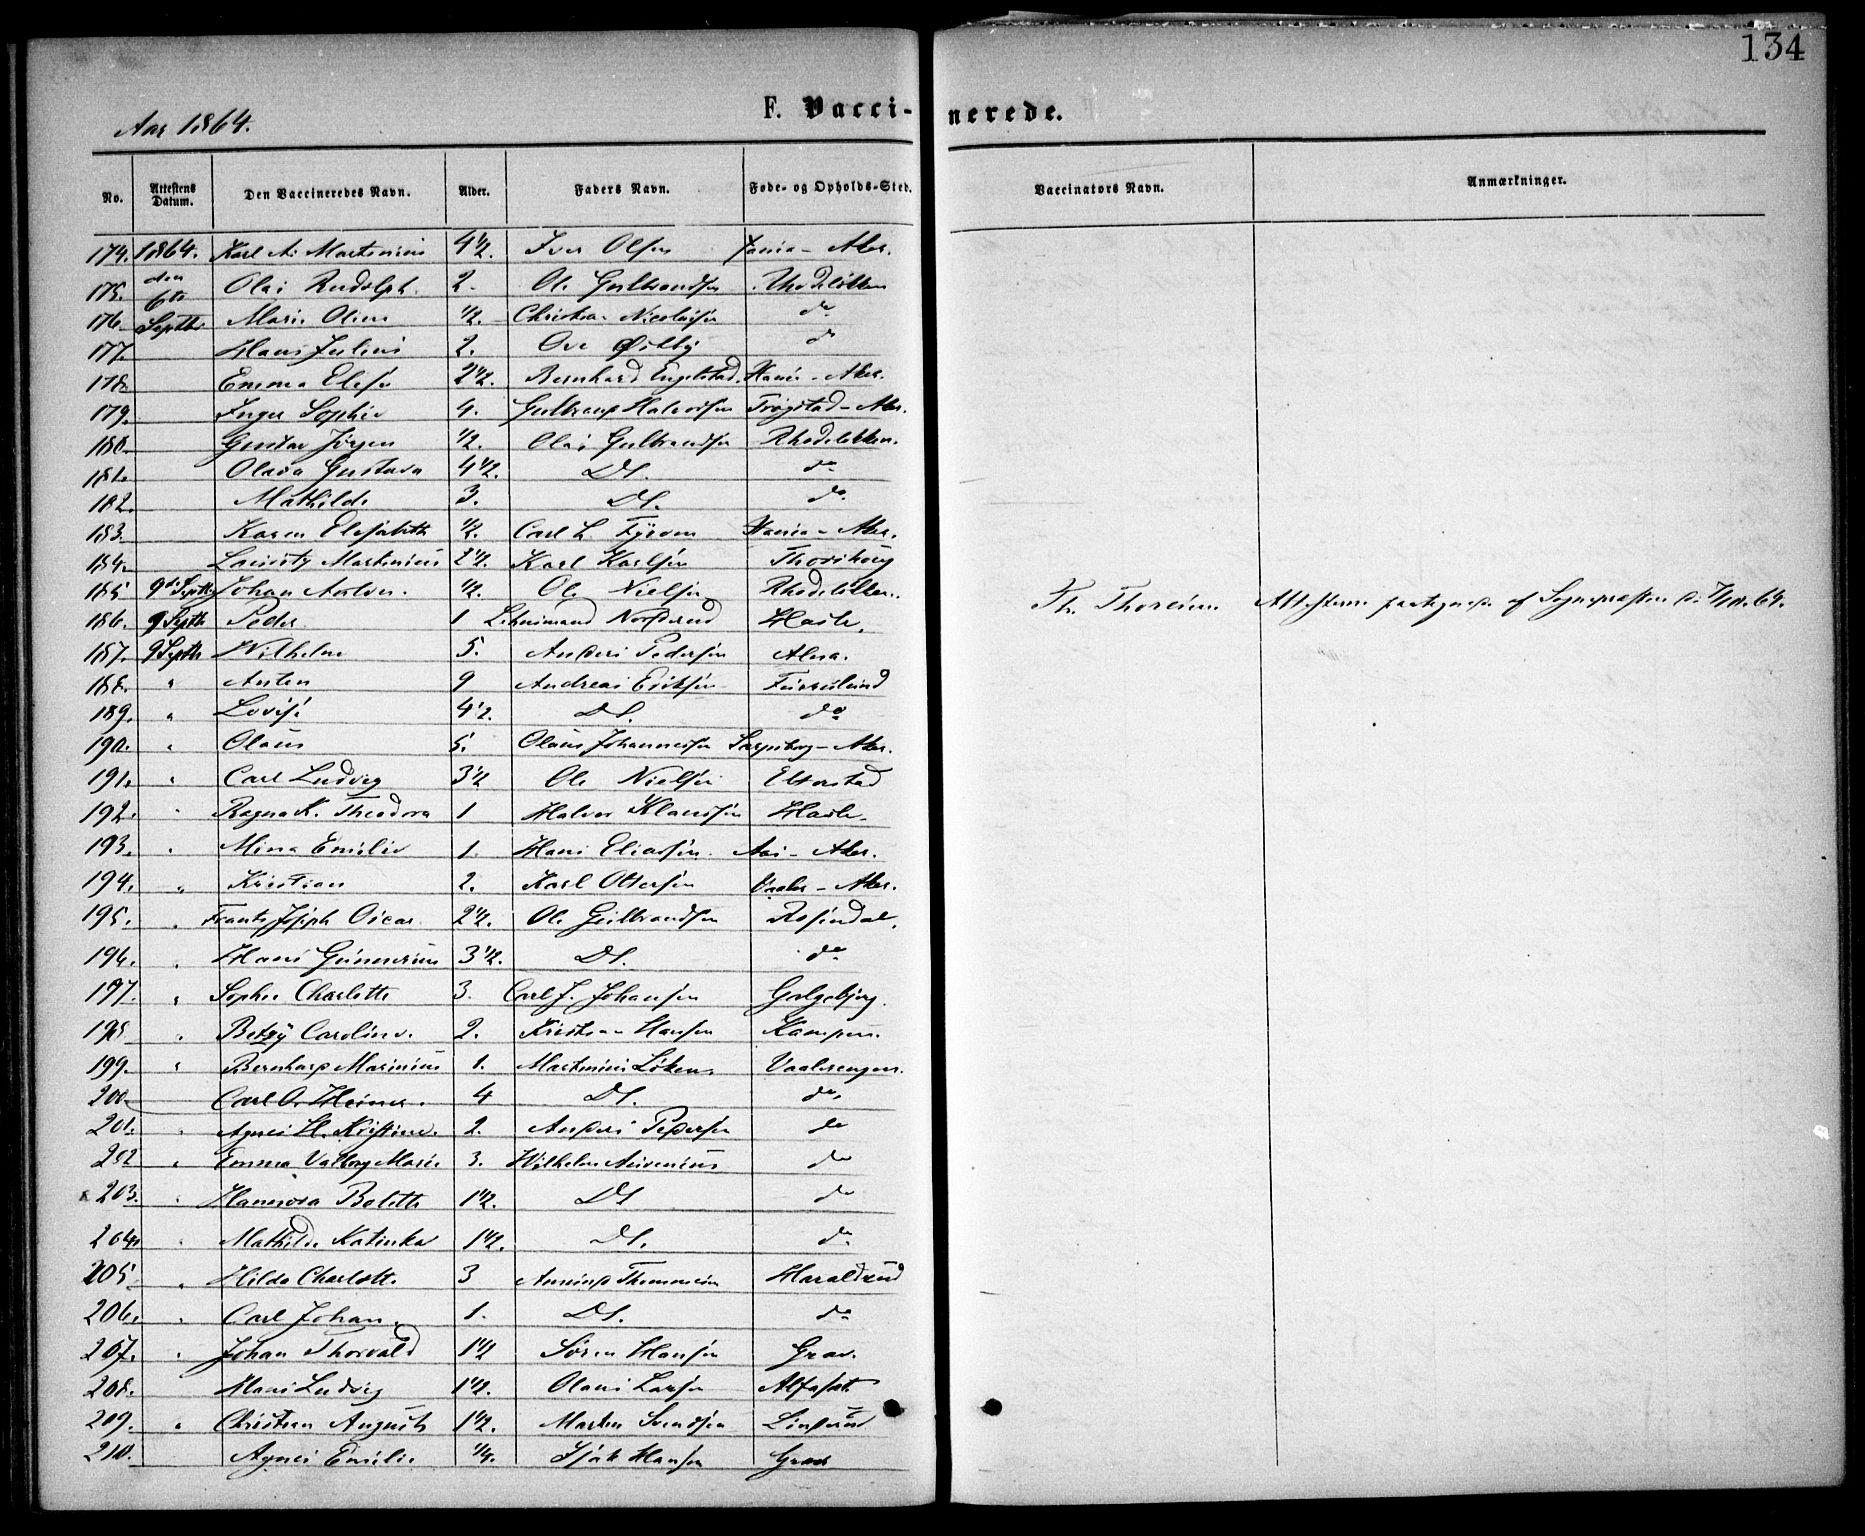 134
Aar 1864.
F. Vaccinerede.
No. Attestens Datum. Den Vaccineredes Navn. Alder. Faders Navn. Føde- og Opholds-Sted. Vaccinators Navn. Anmærkninger.
174. 1864. Karl A. Martinius 4 1/2. Iver Olsen - Aker.
175. den 6te Olai Rudolph. 2. Ole Gulbrandsen Rhodeløkken
176. Septbr Marie Oline 1/2. Christian Nicolaisen do
177. Hans Julius 2. Ove Østby do
178. Emma Elise 2 1/2. Bernhard Engelstad. Xania - Aker.
179. Inger Sophie 4. Gulbrand Halvorsen Trøgstad - Aker.
180. Gustav Jørgen 1/2. Olai Gulbrandsen Rhodeløkken.
181. Olava Gustava 4 1/2. Ds. do
182. Mathilde 3. Ds. do.
183. Karen Elisabeth 1/2. Carl L. Xania - Aker.
184. Martinius 2 1/2. Karl Karlsen Thorshoug
185. 9de Septbr Johan Anton. 1/2. Ole Nielsen Rhodeløkken. Th. Attesterne paategnede af Sognepræsten 64.
186. 9 Septb Peder 1 Hasle.
187. 9 Septb Wilhelm 5. Anders Pedersen Alna.
188. " Anton 9 Andreas Eriksen Furulund
189. " Lovise 4 1/2. Ds. do
190. " Olaus 5. Olaus Johannesen Sarpsborg - Aker.
191. " Carl Ludvig 3 1/2 Ole Nielsen
192. " Ragna K. Theodora 1 Halvor Klausen Hasle.
193. " Mina Emilie 1. Hans Eliassen. Aas - Aker.
194. " Kristian 2. Karl Ottersen Vaaler - Aker.
195. " Frants Joseph Oscar. 2 1/2. Ole Gulbrandsen Rosendal.
196. " Hans Gunnerius 3 1/2. Ds. do
197. " Sophie Charlotte 3. Carl J. Johansen Galgebjerg.
198 " Betzy Caroline. 2. Kristian Hansen Kampen.
199. " Bernhard Marinius 1. Martinius Løken. Vaalerengen.
200 Carl O. Heiner. 4 Ds. do
201. " Agnes H. Kristine. 2. Anders Pedersen do
202 " Emma Valborg Marie 3. Wilhelm do
x 203. " Hannova Bolette 1 1/2. Ds do
204. " Mathilde Katinka 1 1/2. Ds. do
205 " Hilda Charlotte 3 Amund Thommesen Haraldrud
206. " Carl Johan. 1. Ds. do
207. " Johan Thorvald 1 1/2 Søren Hansen Grav.
208. Hans Ludvig 1 1/2. Olaus Larsen Alfaset
209. " Christian August 1 1/2. Martin Svendsen Linderud
210. Agnes Emilie 1/4. Isak Hansen Grav